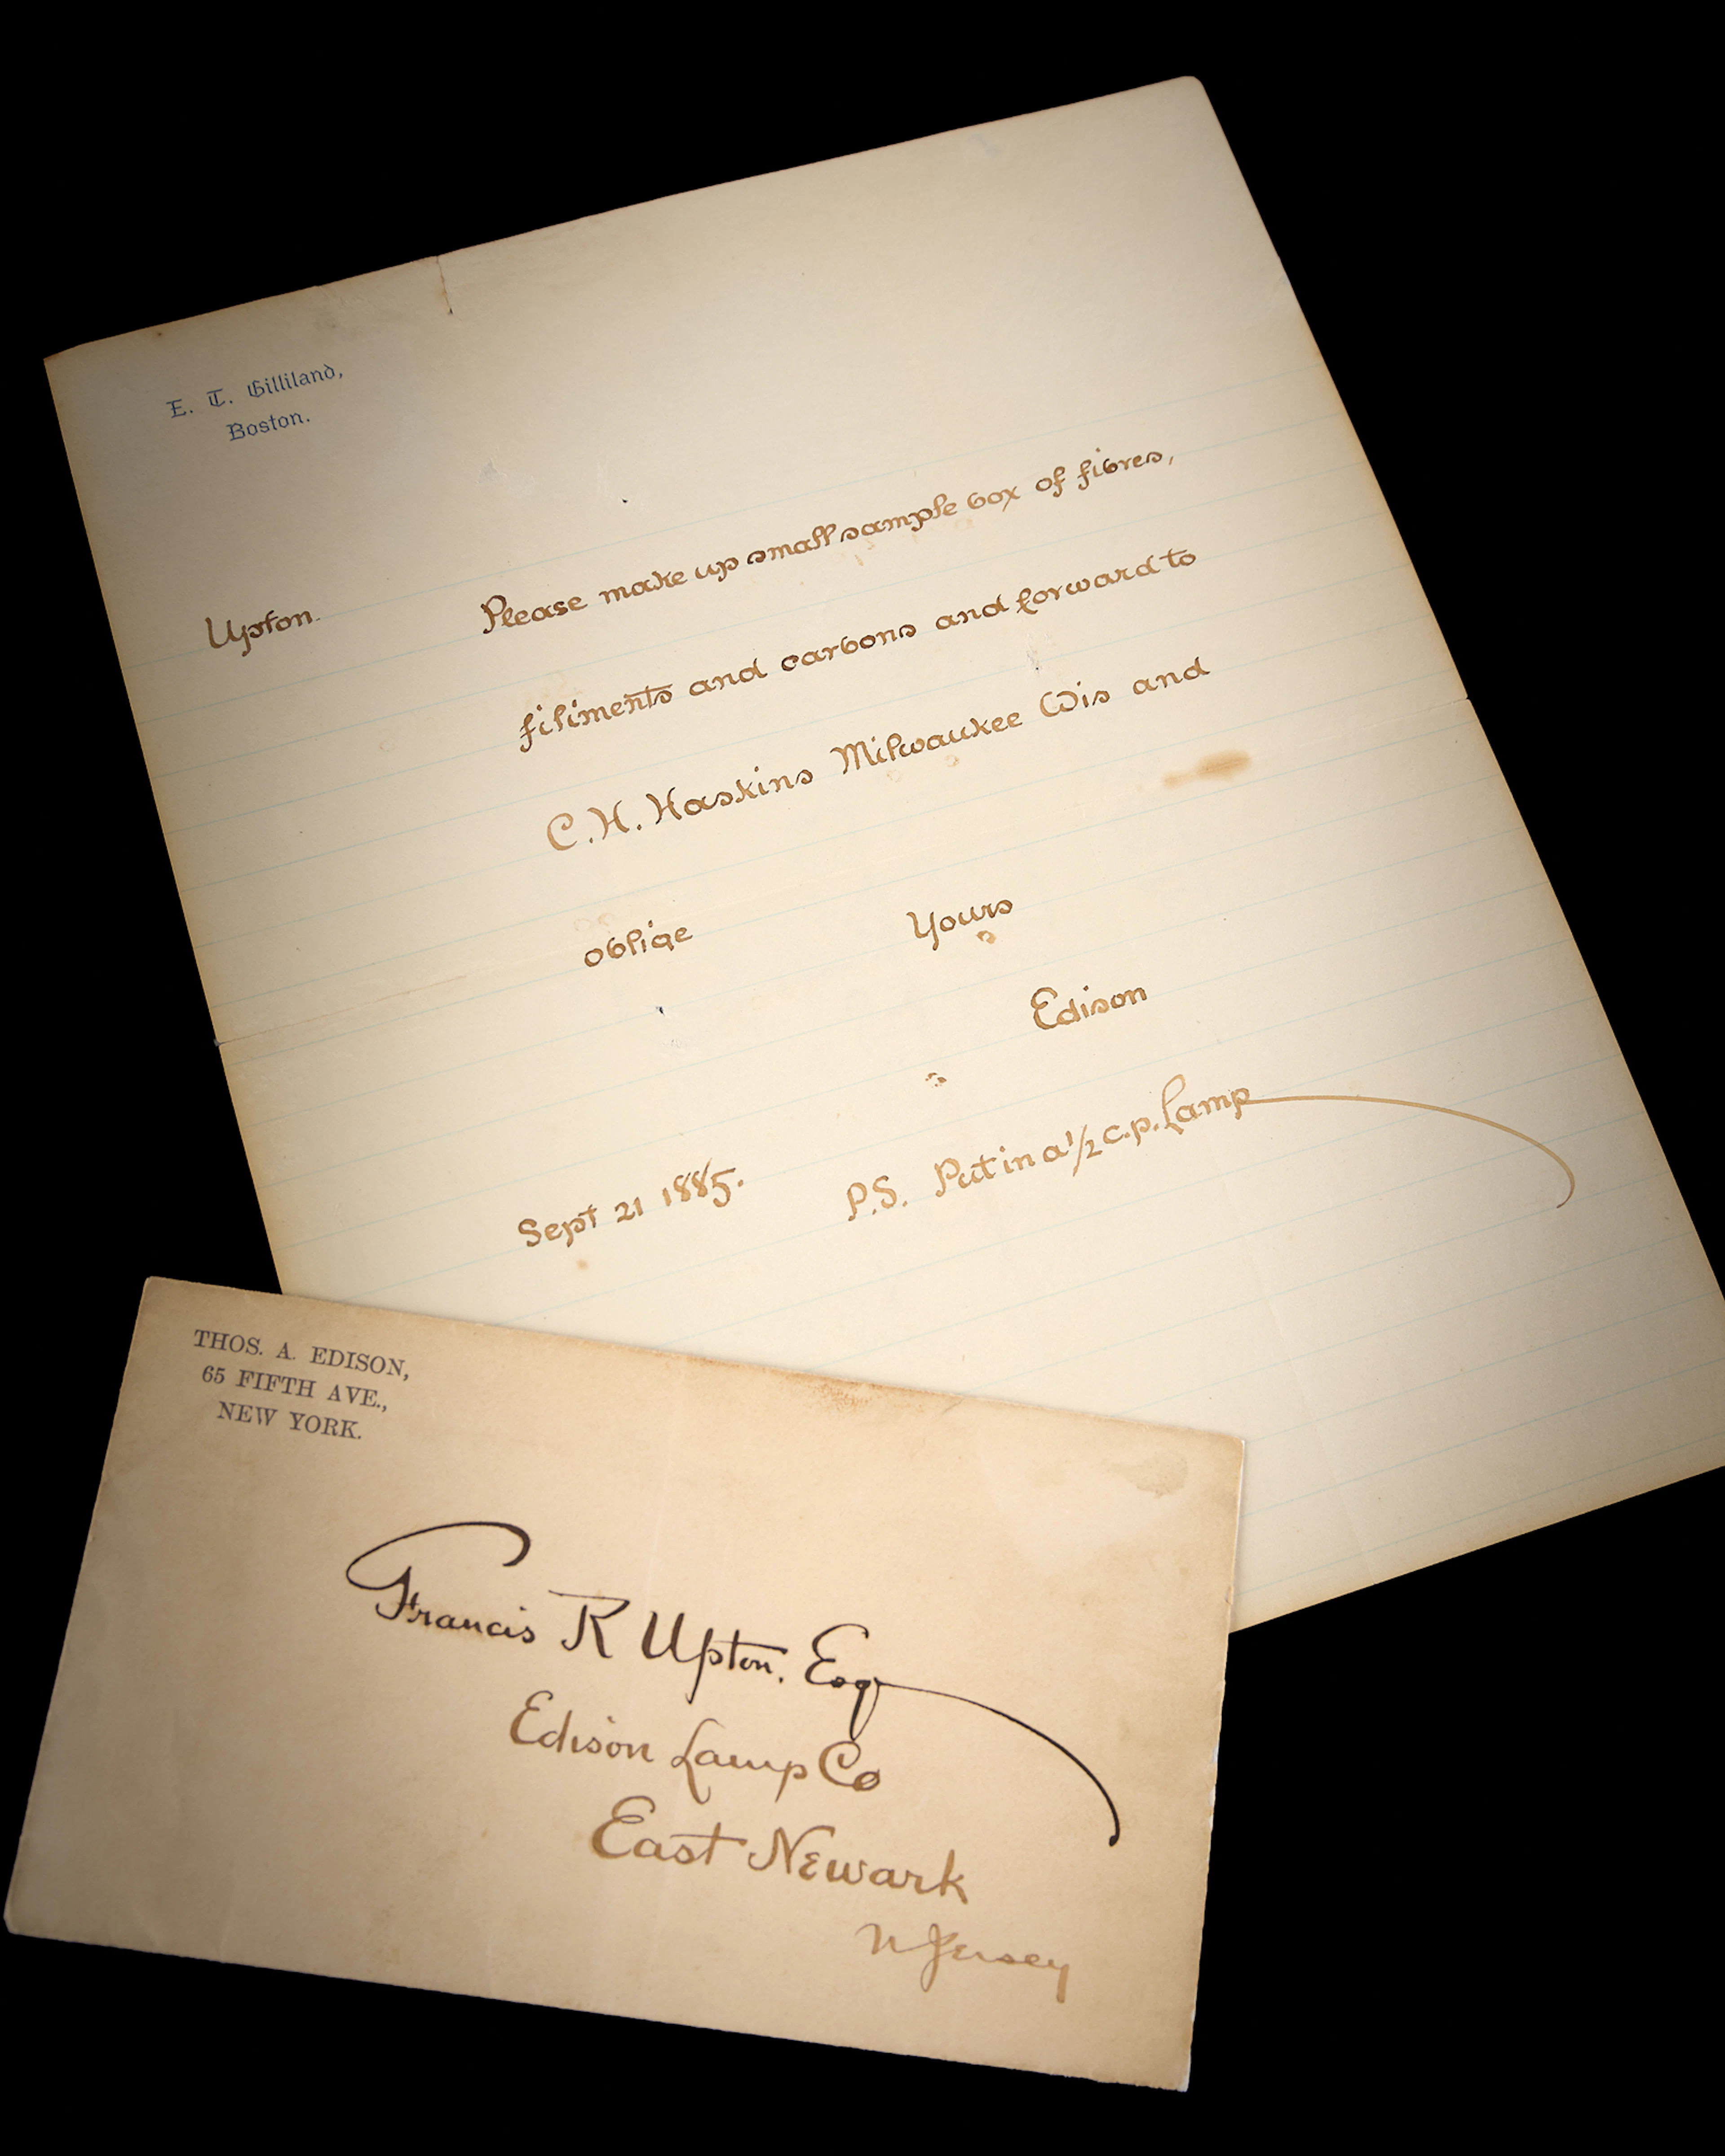 E. T. Gilliland,
Boston.
Upton. Please make up small sample box of fibres,
filiments and carbons and forward to
C.H. Haskins Milwaukee Wis and
oblige Yours
Edison
Sept 21 1885. P.S. Put in a 1/2 c.p. Lamp
THOS. A. EDISON,
65 FIFTH AVE.,
NEW YORK.
Francis R Upton. Esq
Edison Lamp Co
East Newark
N Jersey